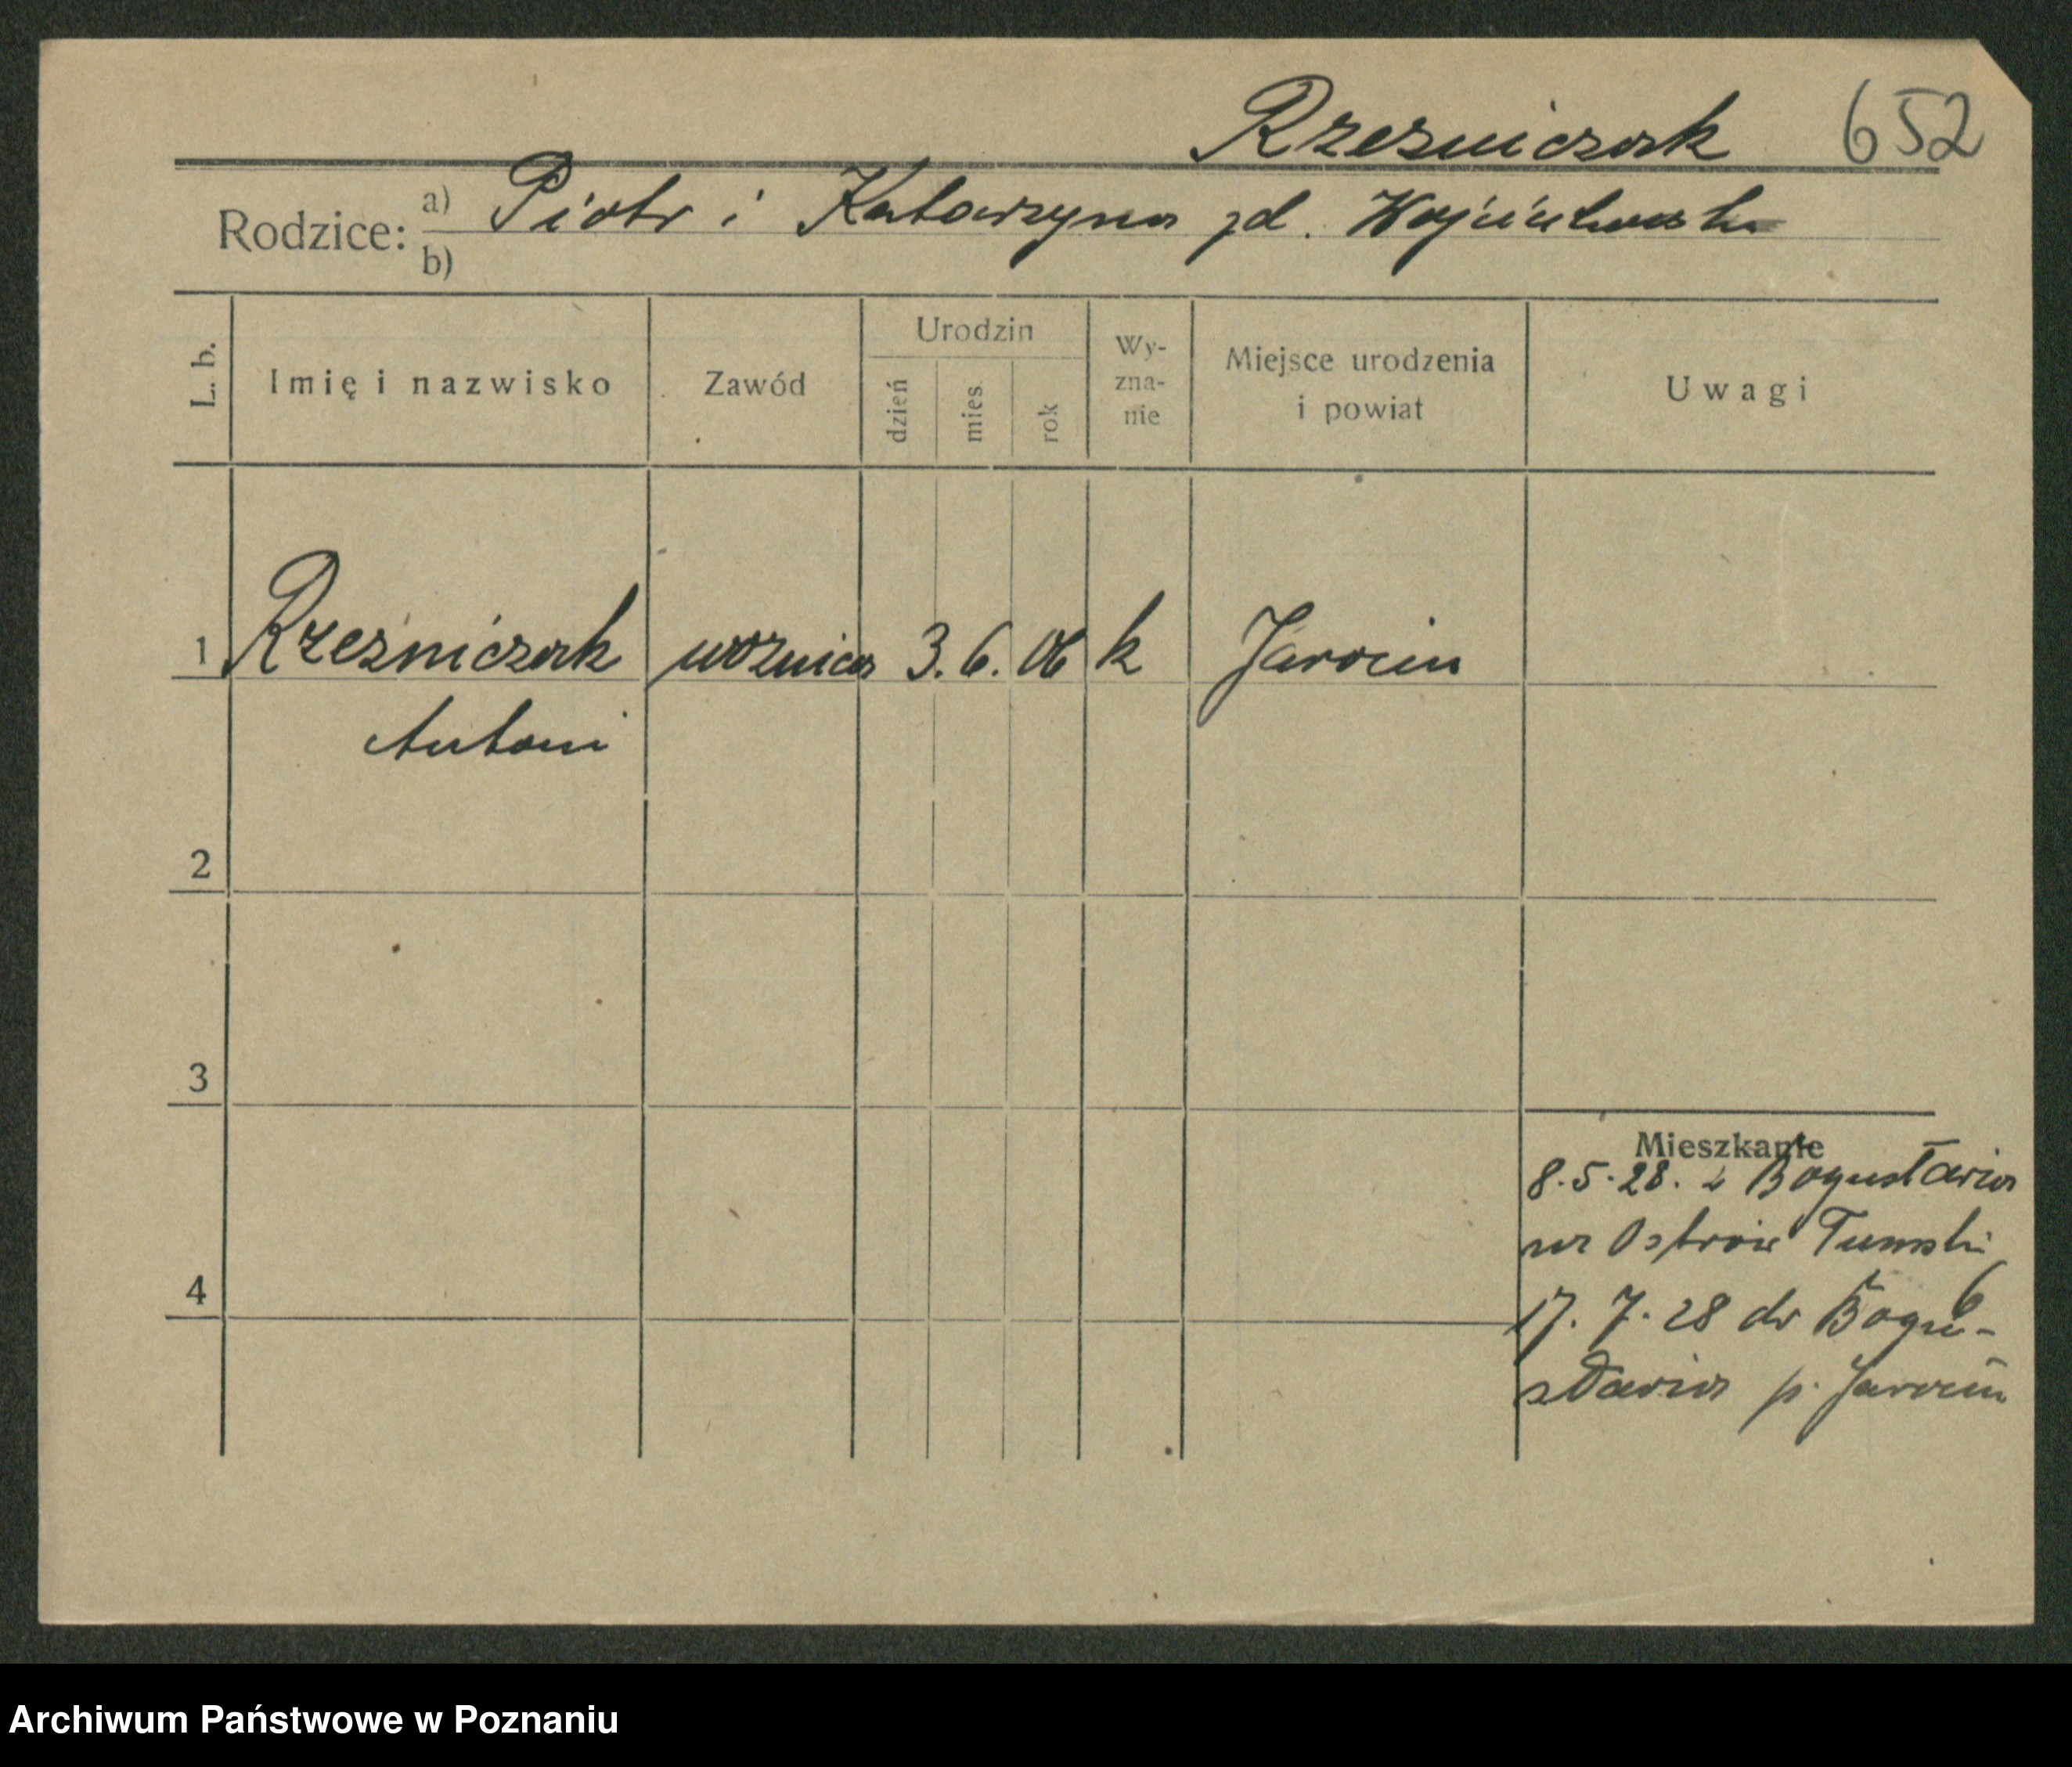 Rzeźniczak 652
Rodzice: a) Piotr i Katarzyna zd.
b)
L. b. Imię i nazwisko Zawód Urodzin dzień mies. rok Wyznanie Miejsce urodzenia i powiat Uwagi
1 Rzeźniczak woźnica 3. 6. 06 k Jarocin
Antoni
2
3
Mieszkanie
8.5.28. z Bogusławia
na Ostrów Tumski 6
4
17. 7. 28 do Bogu-
sławia p. Jarocin
Archiwum Państwowe w Poznaniu